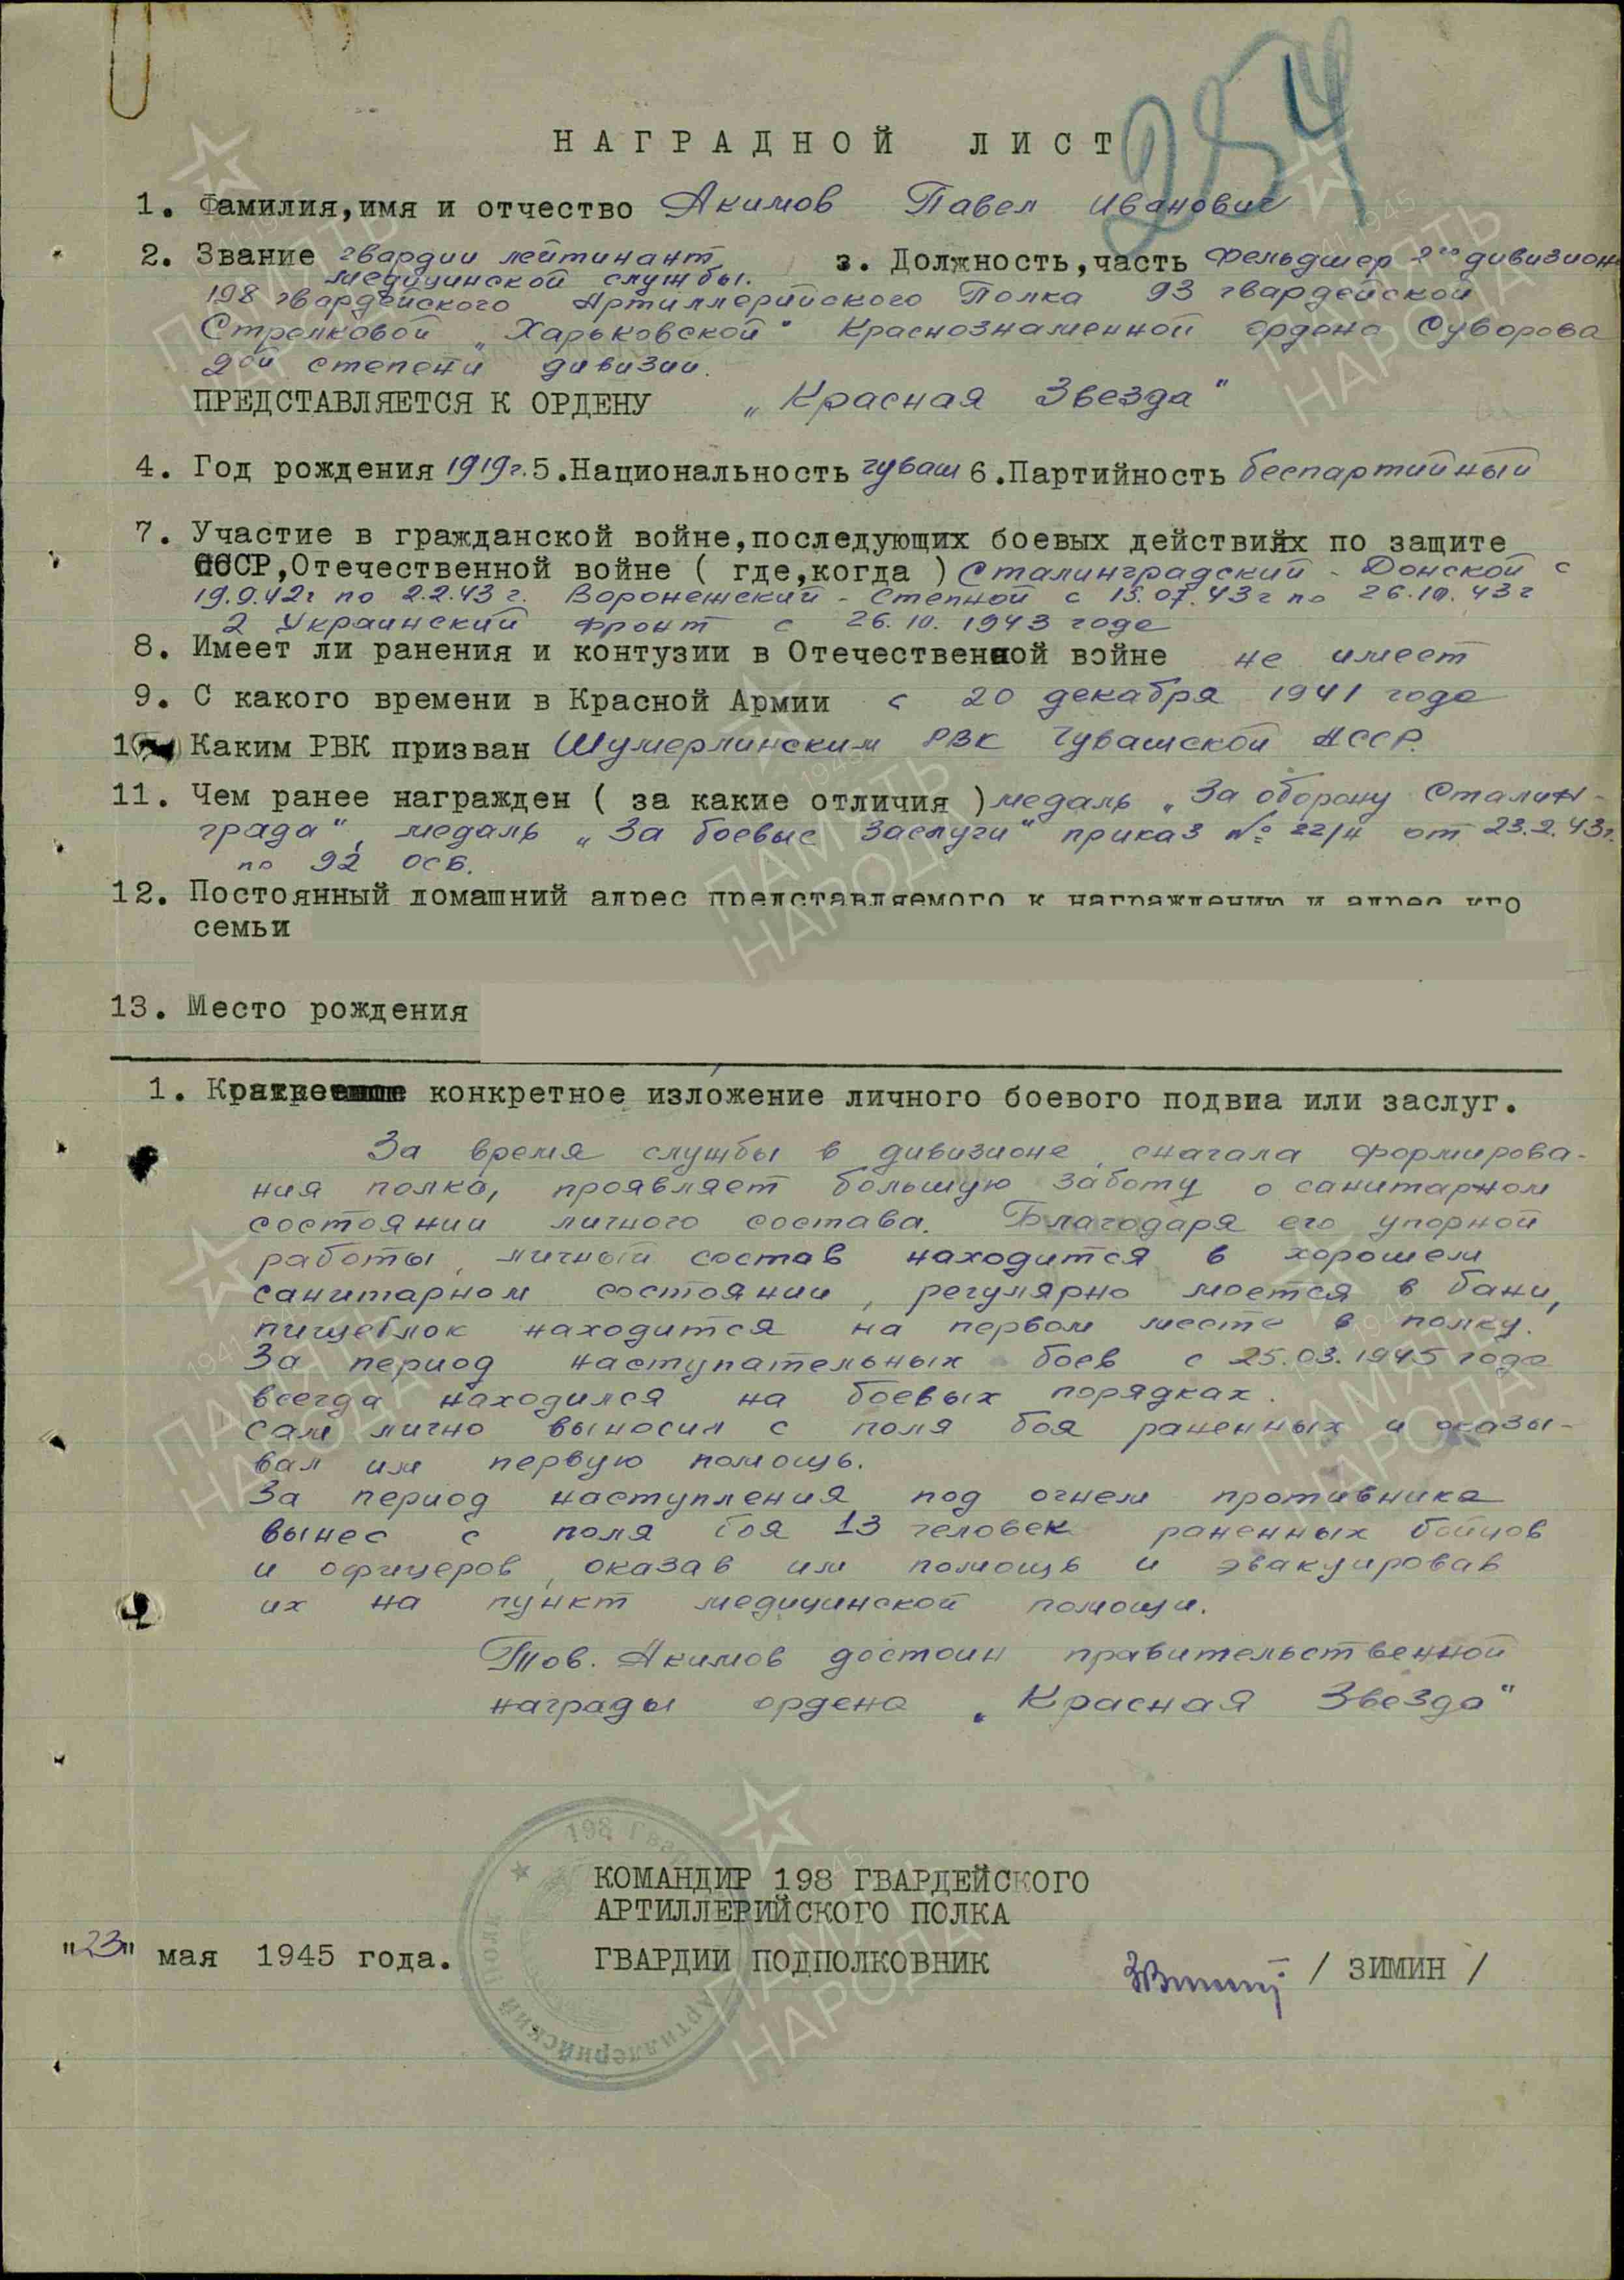 254
НАГРАДНОЙ ЛИСТ
1. Фамилия,имя и отчество Акимов Павел Иванович
2. Звание гвардии лейтинант медицинской службы. 3. Должность,часть Фельдшер 2го дивизион
198 гвардейского Артиллерийского Полка 93 гвардейской
Стрелковой „Харьковской" Краснознаменной ордена Суворова
2ой степени дивизии.
ПРЕДСТАВЛЯЕТСЯ К ОРДЕНУ „Красная Звезда"
4. Год рождения 1919г. 5.Национальность чуваш 6.Партийность беспартийный
7. Участие в гражданской войне,последующих боевых действиях по защите
СССР,Отечественной войне ( где,когда ) Сталинградский - Донской с
19.9.42г по 2.2.43 г. Воронежский - Степной с 15.07.43г по 26.10.43г
2 Украинский фронт с 26.10.1943 года
8. Имеет ли ранения и контузии в Отечественной войне не имеет
9. С какого времени в Красной Армии с 20 декабря 1941 года
10. Каким РВК призван Шумерлинским РВК Чувашской АССР.
11. Чем ранее награжден ( за какие отличия ) медаль „За оборону Сталин-
града", медаль „За боевые заслуги" приказ № 22/н от 23.2.43г.
по 92 ОСБ.
12. Постоянный домашний адрес представляемого к награждению и адрес его
семьи
13. Место рождения
1. Краткое конкретное изложение личного боевого подвиа или заслуг.
За время службы в дивизионе, сначала формирова-
ния полка, проявляет большую заботу о санитарном
состоянии личного состава. Благодаря его упорной
работы, личный состав находится в хорошем
санитарном состоянии, регулярно моется в бани,
пищеблок находится на первом месте в полку.
За период наступательных боев с 25.03.1945 года
всегда находился на боевых порядках.
Сам лично выносил с поля боя раненных и оказы-
вал им первую помощь.
За период наступления под огнем противника
вынес с поля боя 13 человек раненных бойцов
и офицеров, оказав им помощь и эвакуировав
их на пункт медицинской помощи.
Тов. Акимов достоин правительственной
награды ордена „Красная Звезда"
КОМАНДИР 198 ГВАРДЕЙСКОГО
АРТИЛЛЕРИЙСКОГО ПОЛКА
"23" мая 1945 года. ГВАРДИИ ПОДПОЛКОВНИК / ЗИМИН /
198 Гвар Артиллерийский полк
ПАМЯТЬ НАРОДА
1941 1945